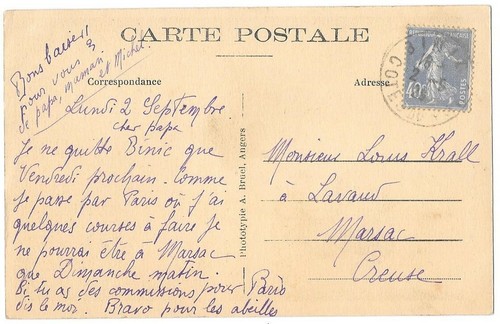 CARTE POSTALE
Correspondance
Adresse
Bons baisers
Pour vous 3
papa maman et Michel.
Lundi 2 Septembre.
cher papa
Je ne quitte Binic que
Vendredi prochain. Comme
je passe par Paris où j'ai
quelques courses à faire je
ne pourrai être à Marsac
que Dimanche matin.
Si tu as des commissions pour Paris
dis le moi. Bravo pour les abeilles
Phototypie A. Bruel, Angers
Monsieur Louis Krall
à Lavaud
Marsac
Creuse
40c
POSTES